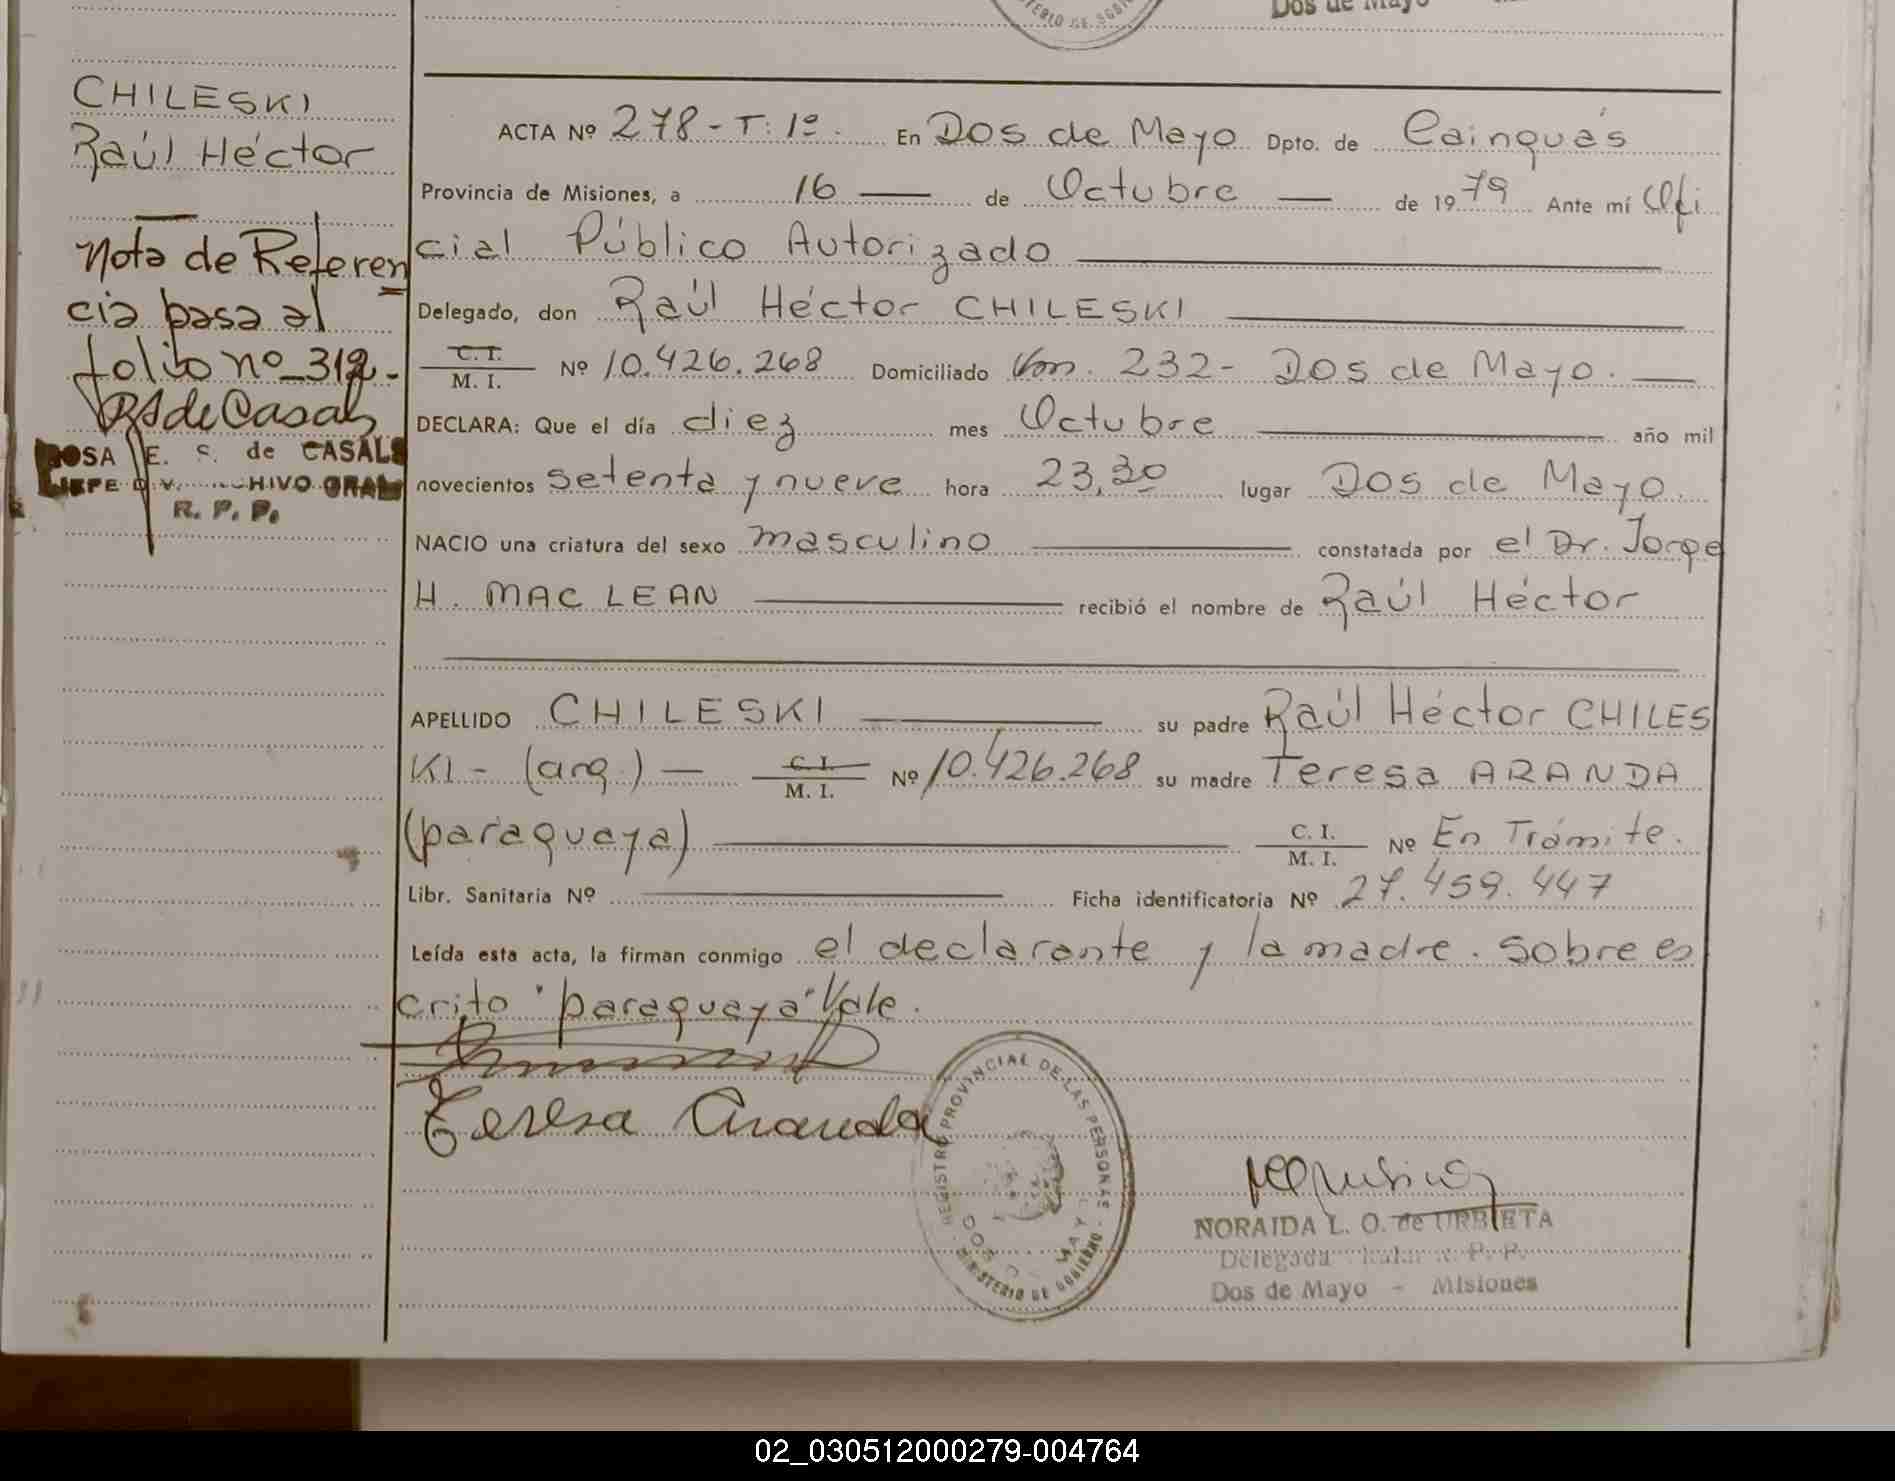 Dos de Mayo
CHILESKI
Raúl Héctor
Nota de Referen
cia pasa al
folio nº 312-
RS de Casals
ROSA E. S. de CASALS
JEFE DIV. ARCHIVO GRAL
R. P. P.
ACTA Nº 278-T: 1º. En Dos de Mayo Dpto. de Cainguás
Provincia de Misiones, a 16 — de Octubre — de 1979 Ante mí Ofi
cial Público Autorizado
Delegado, don Raúl Héctor CHILESKI
C.I.
M. I. Nº 10.426.268 Domiciliado Km. 232- Dos de Mayo. —
DECLARA: Que el día diez mes Octubre año mil
novecientos setenta y nueve hora 23,30 lugar Dos de Mayo.
NACIO una criatura del sexo masculino constatada por el Dr. Jorge
H. MAC LEAN recibió el nombre de Raúl Héctor
APELLIDO CHILESKI su padre Raúl Héctor CHILES
KI- (arg.) — C.I.
M. I. Nº 10.426.268 su madre Teresa ARANDA
(paraguaya) C. I.
M. I. Nº En Trámite.
Libr. Sanitaria Nº Ficha identificatoria Nº 27.459.447
Leída esta acta, la firman conmigo el declarante y la madre. Sobrees
crito "paraguaya" Vale.
Teresa Aranda
REGISTRO PROVINCIAL DE LAS PERSONAS
MINISTERIO DE GOBIERNO
NORAIDA L. O. de URBIETA
Delegada R. P. P.
Dos de Mayo - Misiones
02_030512000279-004764